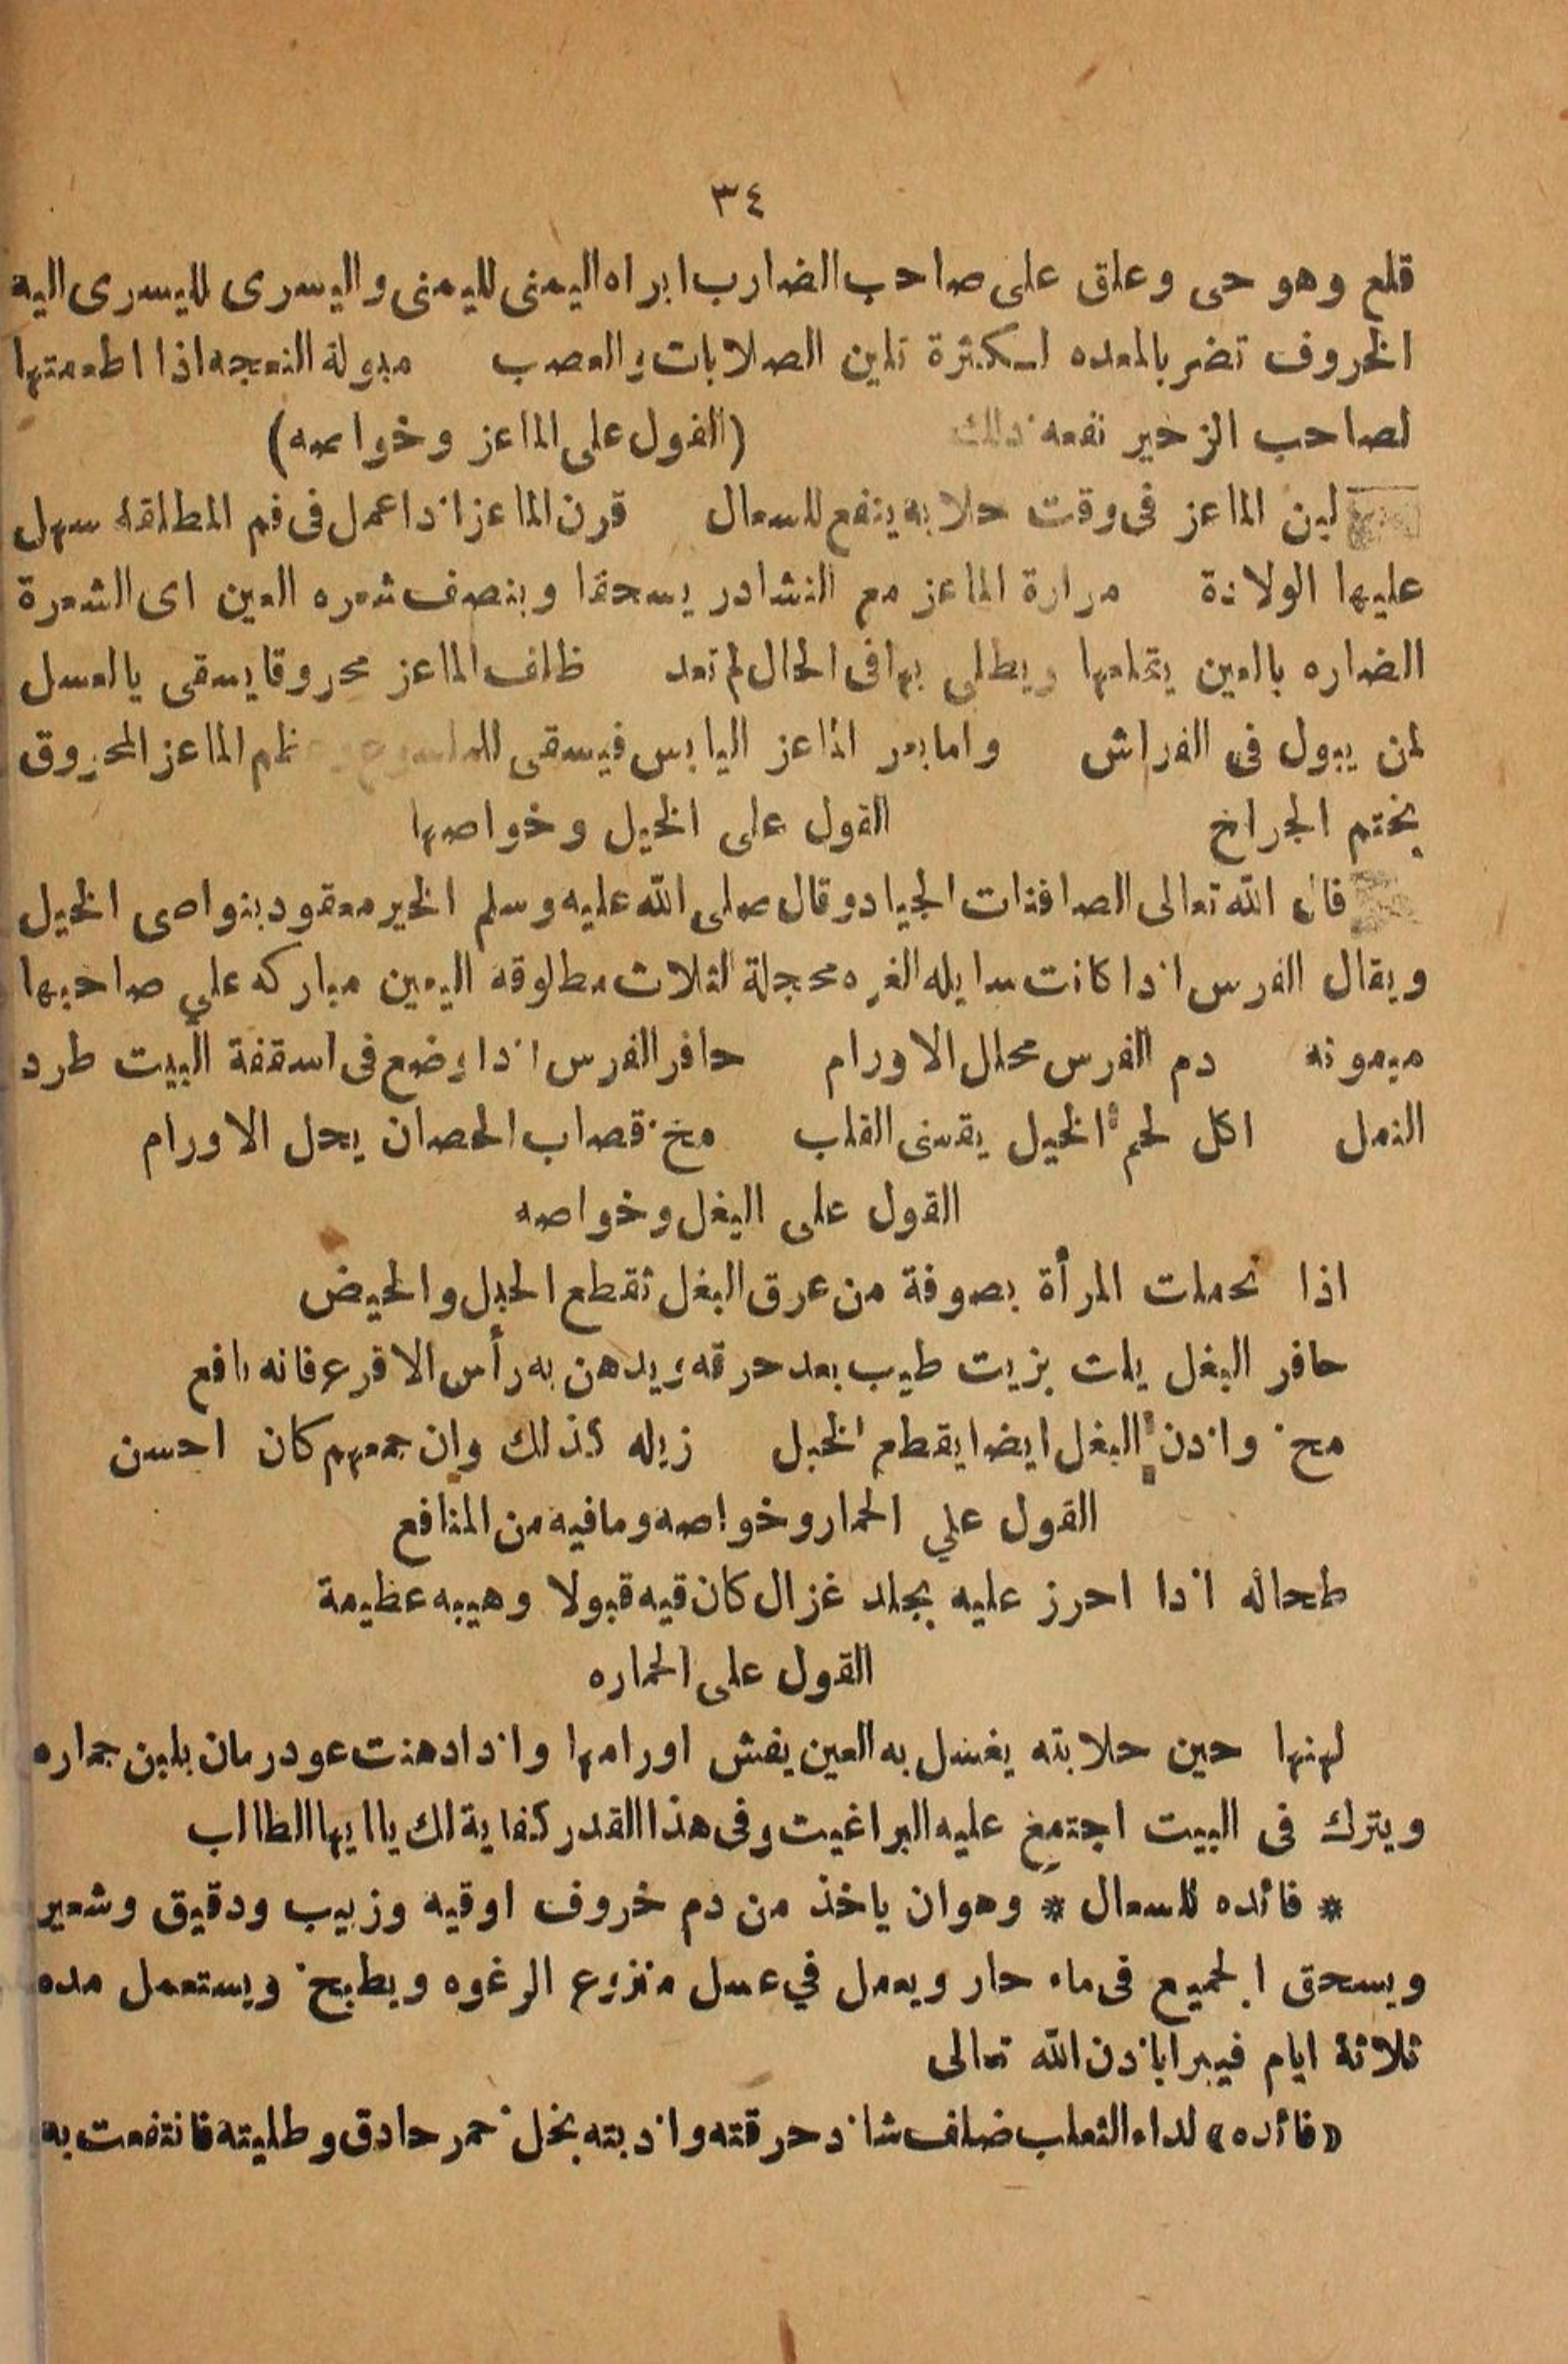 ٣٤
قلع وهو حى وعلق على صاحب الضارب ابراه اليمنى لليمنى واليسرى لليسرى الية
الخروف تضر بالمعده اسكثرة تلين الصلابات والعصب مبولة النعجه اذا اطعمتها
لصاحب الزحير نفعه ذلك (القول على الماعز وخواصه)
لبن الماعز فى وقت حلابه ينفع للسعال قرن الماعز اذا عمل فى فم المطلقه سهل
عليها الولادة مرارة الماعز مع النشادر يسحقا وبنصف شعره العين اى الشعرة
الضاره بالعين يتخلعها ويطلى بها فى الحال لم تعد ظلف الماعز محروقا يسقى بالعسل
لمن يبول فى الفراش واما بعر الماعز اليابس فيسقى للملسوع عظم الماعز المحروق
بختم الجراخ القول على الخيل وخواصها
قال الله تعالى الصافنات الجياد وقال صلى الله عليه وسلم الخير معقود بنواصى الخيل
ويقال الفرس اذا كانت سايله الغره محجلة الثلاث مطلوقه اليمين مباركه علي صاحبها
ميمونه دم الفرس محلل الاورام حافر الفرس اذا وضع فى اسقفة البيت طرد
النمل اكل لحم الخيل يقسى القلب مخ قصاب الحصان يحل الاورام
القول على البغل وخواصه
اذا تحملت المرأة بصوفة من عرق البغل تقطع الحبل والحيض
حافر البغل يلت بزيت طيب بعد حرقه ويدهن به رأس الاقرع فانه نافع
مخ واذن البغل ايضا يقطع الخبل زبله كذلك وان جمعهم كان احسن
القول علي الحمار وخواصه ومافيه من المنافع
طحاله اذا احرز عليه بجلد غزال كان قيه قبولا وهيبه عظيمة
القول على الحماره
لبنها حين حلابته يغسل به العين يفش اورامها واذا دهنت عود رمان بلبن جماره
ويترك فى البيت اجتمغ عليه البراغيت وفى هذا القدر كفاية لك يا ايها الطالب
* فائده للسعال * وهو ان ياخذ من دم خروف اوقيه وزبيب ودقيق وشعير
ويسحق الجميع فى ماء حار ويعمل في عسل منزوع الرغوه ويطبخ ويستعمل مده
ثلاثة ايام فيبرا باذن الله تعالى
(فائده) لداء الثعلب ضلف شاذ حرقته واذبته بخل خمر حادق وطليته فانتفعت به